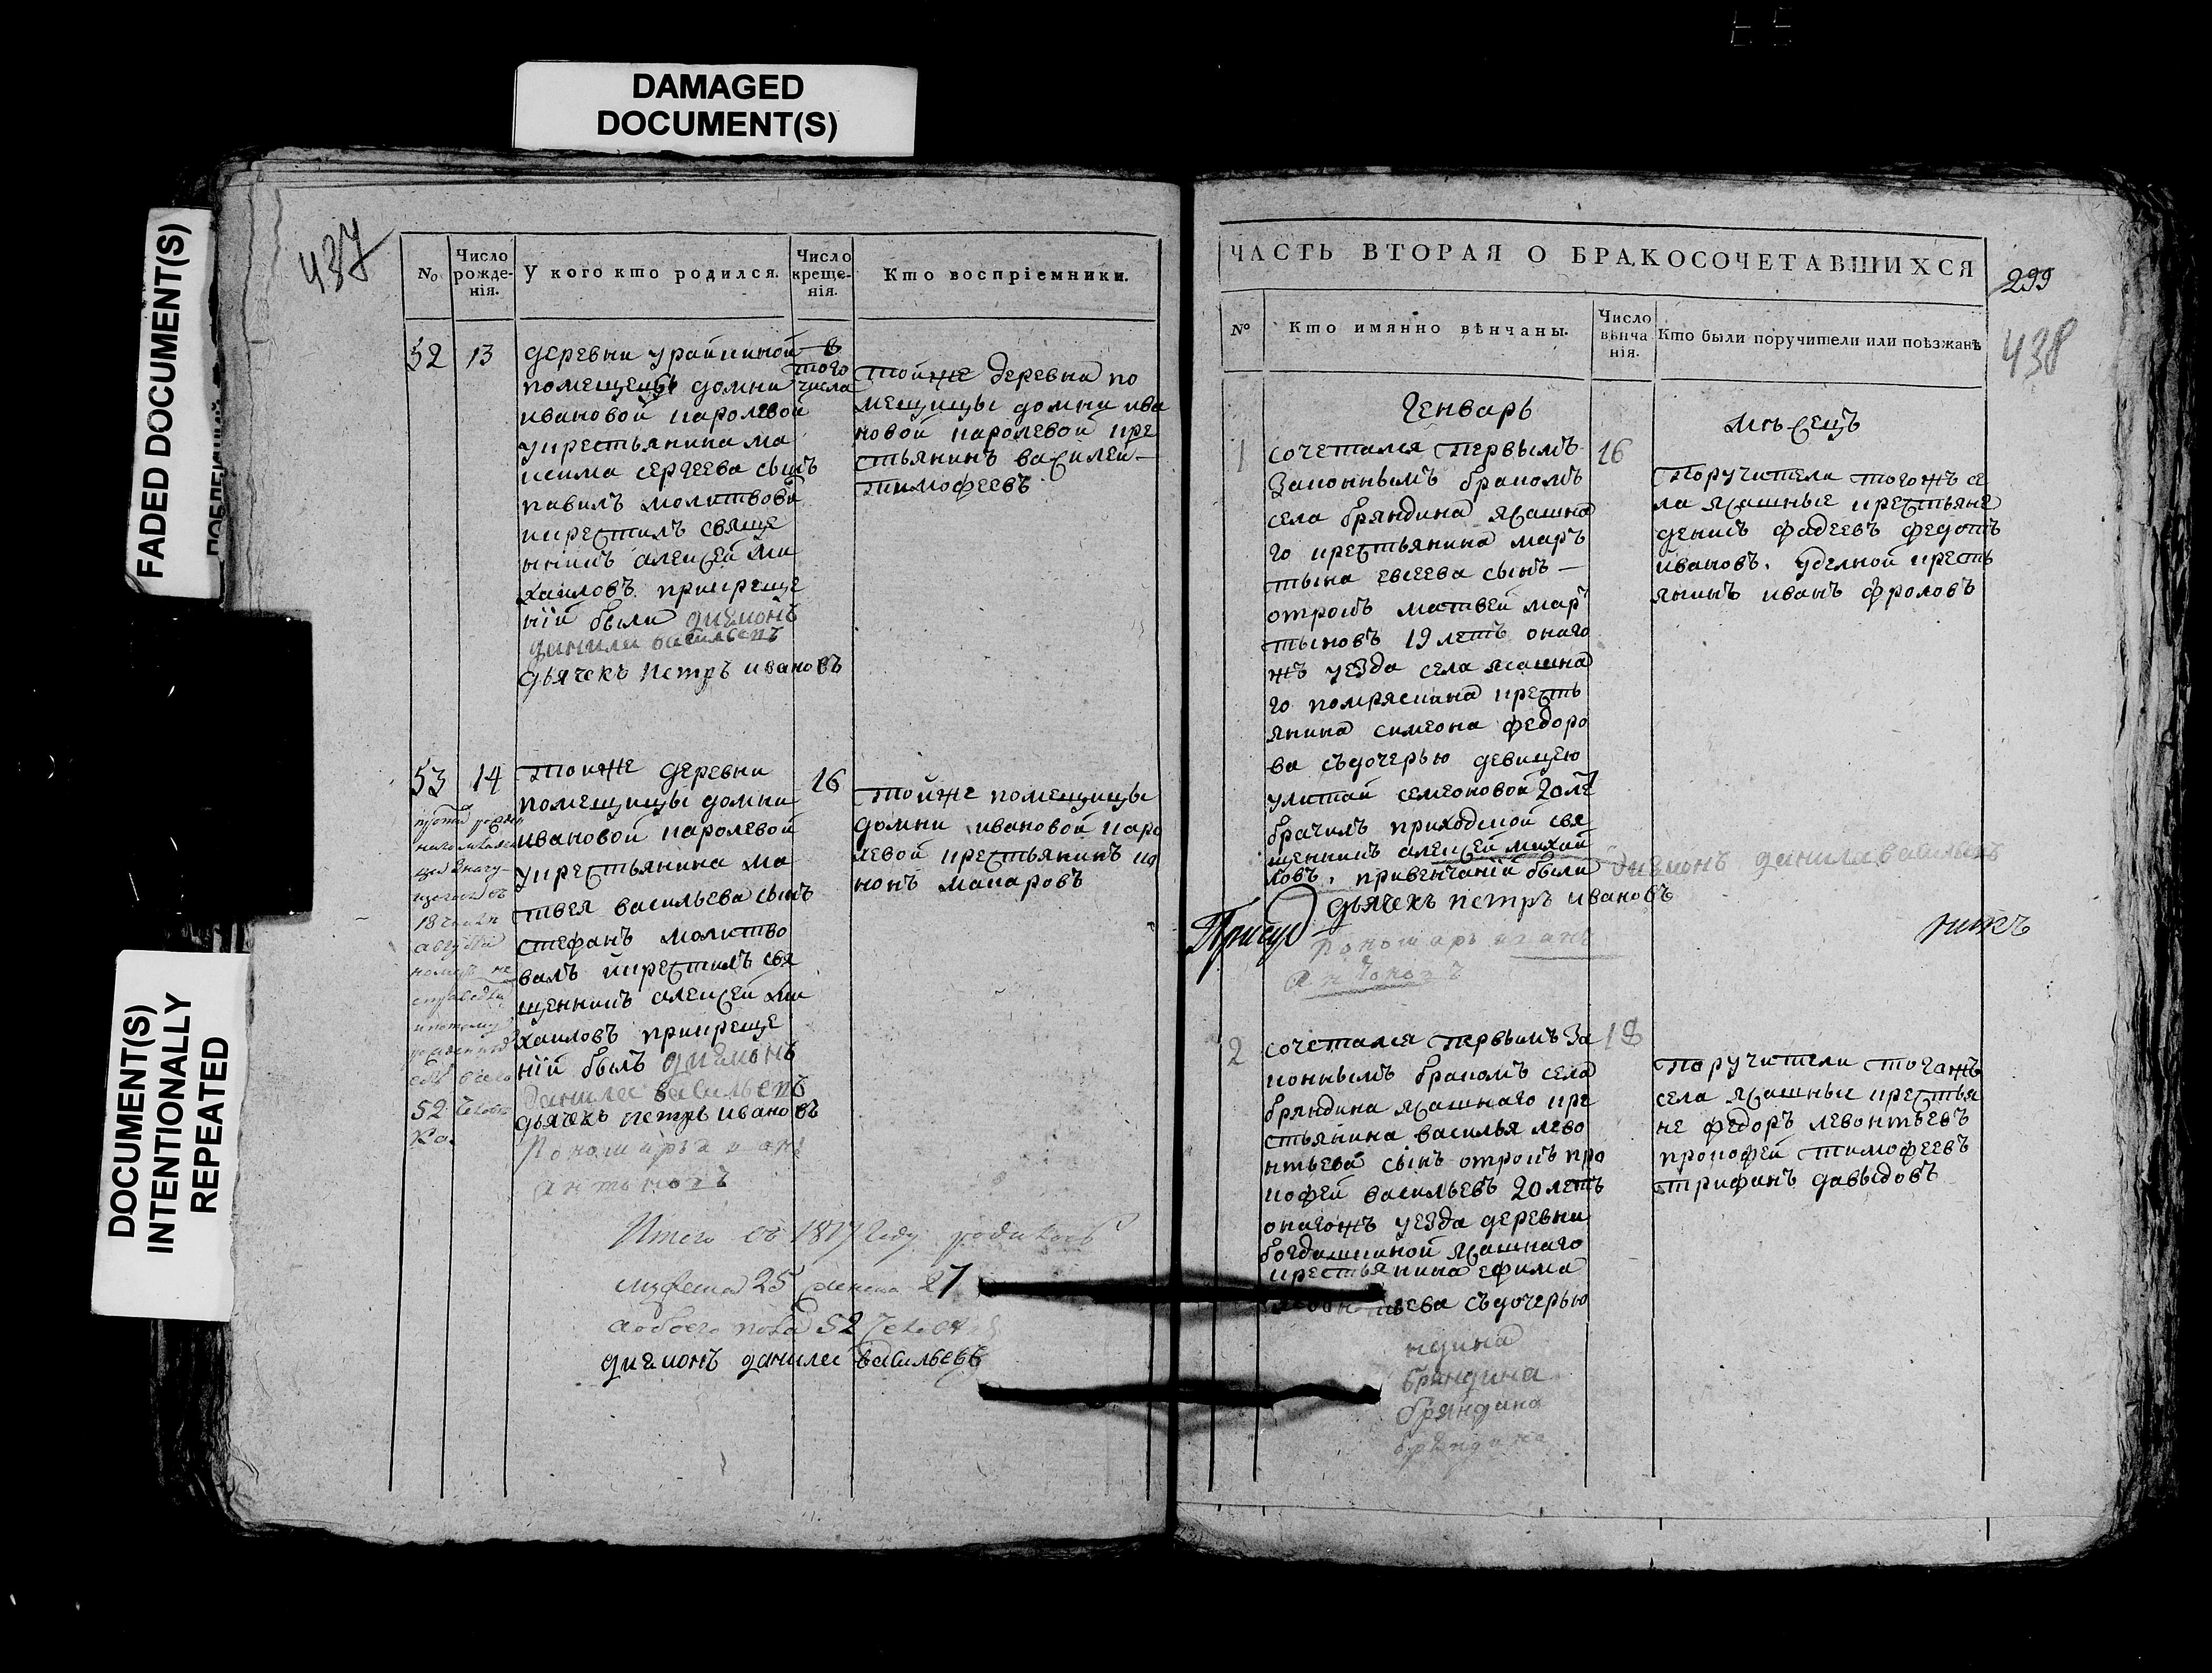 DAMAGED
DOCUMENT(S)
FADED DOCUMENT(S)
DOCUMENT(S)
INTENTIONALLY
REPEATED
437
№
Число рожде-нія.
У кого кто родился.
Число креще-нія.
Кто воспріемники.
52 13
деревни урайкиной
помещецы домни
ивановой каролевой
укрестьянина ма
ксима сергеева сынъ
павилъ молитвова
икрестилъ свяще
нникъ алексей ми
хаиловъ прикреще
ніи были диаконъ
данила васильевъ
дьячекъ петръ ивановъ
того
числа
тойже деревни по
мещицы домни ива
новой каролевой кре
стьянинъ василей
тимофеевъ
53 14
тойже деревни
помещицы домни
ивановой каролевой
укрестьянина ма
твея васильева сынъ
стефанъ молитво
валъ икрестилъ свя
щенникъ алексей ми
хаиловъ прикреще
ніи былъ диаконъ
данила васильевъ
дьячекъ петръ ивановъ
Пономарь иванъ
антоновъ
16
тойже помещицы
домни ивановой каро
левой крестьянинъ ко
нонъ макаровъ
18
августа
52
Итого въ 1817 году родилось
мужеска 25 женска 27
а обоего пола 52 человека
диаконъ данила васильевъ
ЧАСТЬ ВТОРАЯ О БРАКОСОЧЕТАВШИХСЯ
299
438
№
Кто имянно вѣнчаны.
Число вѣнча нія.
Кто были поручители или поѣзжанѣ
Генварь
мѣсецъ
1
сочетался первымъ
законнымъ бракомъ
села бряндина ясашна
го крестьянина мар
тына евсеева сынъ
отрокъ матвей мар
тыновъ 19 летъ онаго
жъ уезда села ясашна
го помряскина кресть
янина симеона федоро
ва съдочерью девицею
улитай семеоновой 20 ле
брачилъ приходской свя
щенникъ алексей михай
ловъ. привенчаніи были диаконъ данила васильевъ
дьячекъ петръ ивановъ
Пономарь иванъ
антоновъ
16
Поручители тогожъ се
ла ясашные крестьяне
денисъ фадеевъ федотъ
ивановъ. уделной кресть
янинъ иванъ фроловъ
2
сочетался первымъ за
коннымъ бракомъ села
бряндина ясашнаго кре
стьянина василья лево
нтьева сынъ отрокъ про
кофей васильевъ 20 летъ
онагожъ уезда деревни
богдашкиной ясашнаго
крестьянина ефима
съдочерью
18
поручители тогожъ
села ясашные крестья
не федоръ левонтьевъ
прокофей тимофеевъ
трифанъ давыдовъ
ндина
бряндина
бряндина
бряндина